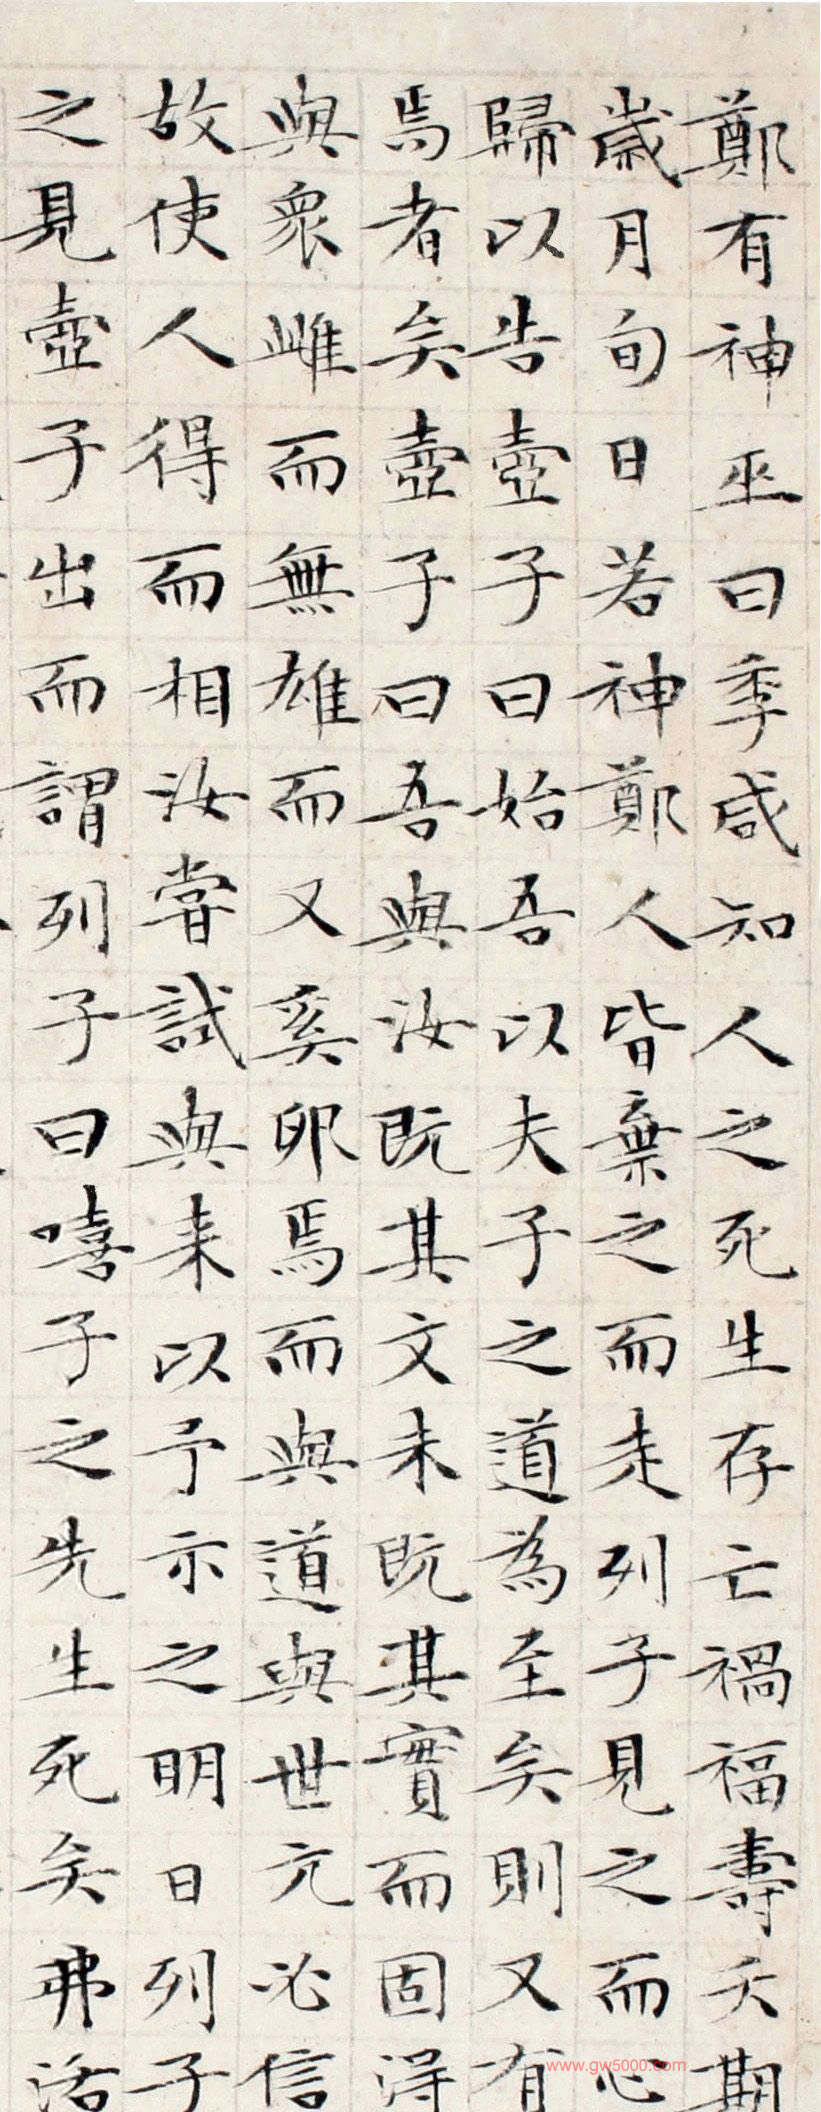 鄭有神巫曰季咸知人之死生存亡禍福壽夭期
歲月旬日若神鄭人皆棄之而走列子見之而心
歸以告壺子曰始吾以夫子之道為至矣則又有
焉者矣壺子曰吾與汝既其文未既其實而固得
與衆雌而無雄而又奚卵焉而與道與世亢必信
故使人得而相汝嘗試與来以予示之明日列子
之見壺子出而謂列子曰嘻子之先生死矣弗活
www.gw5000.com